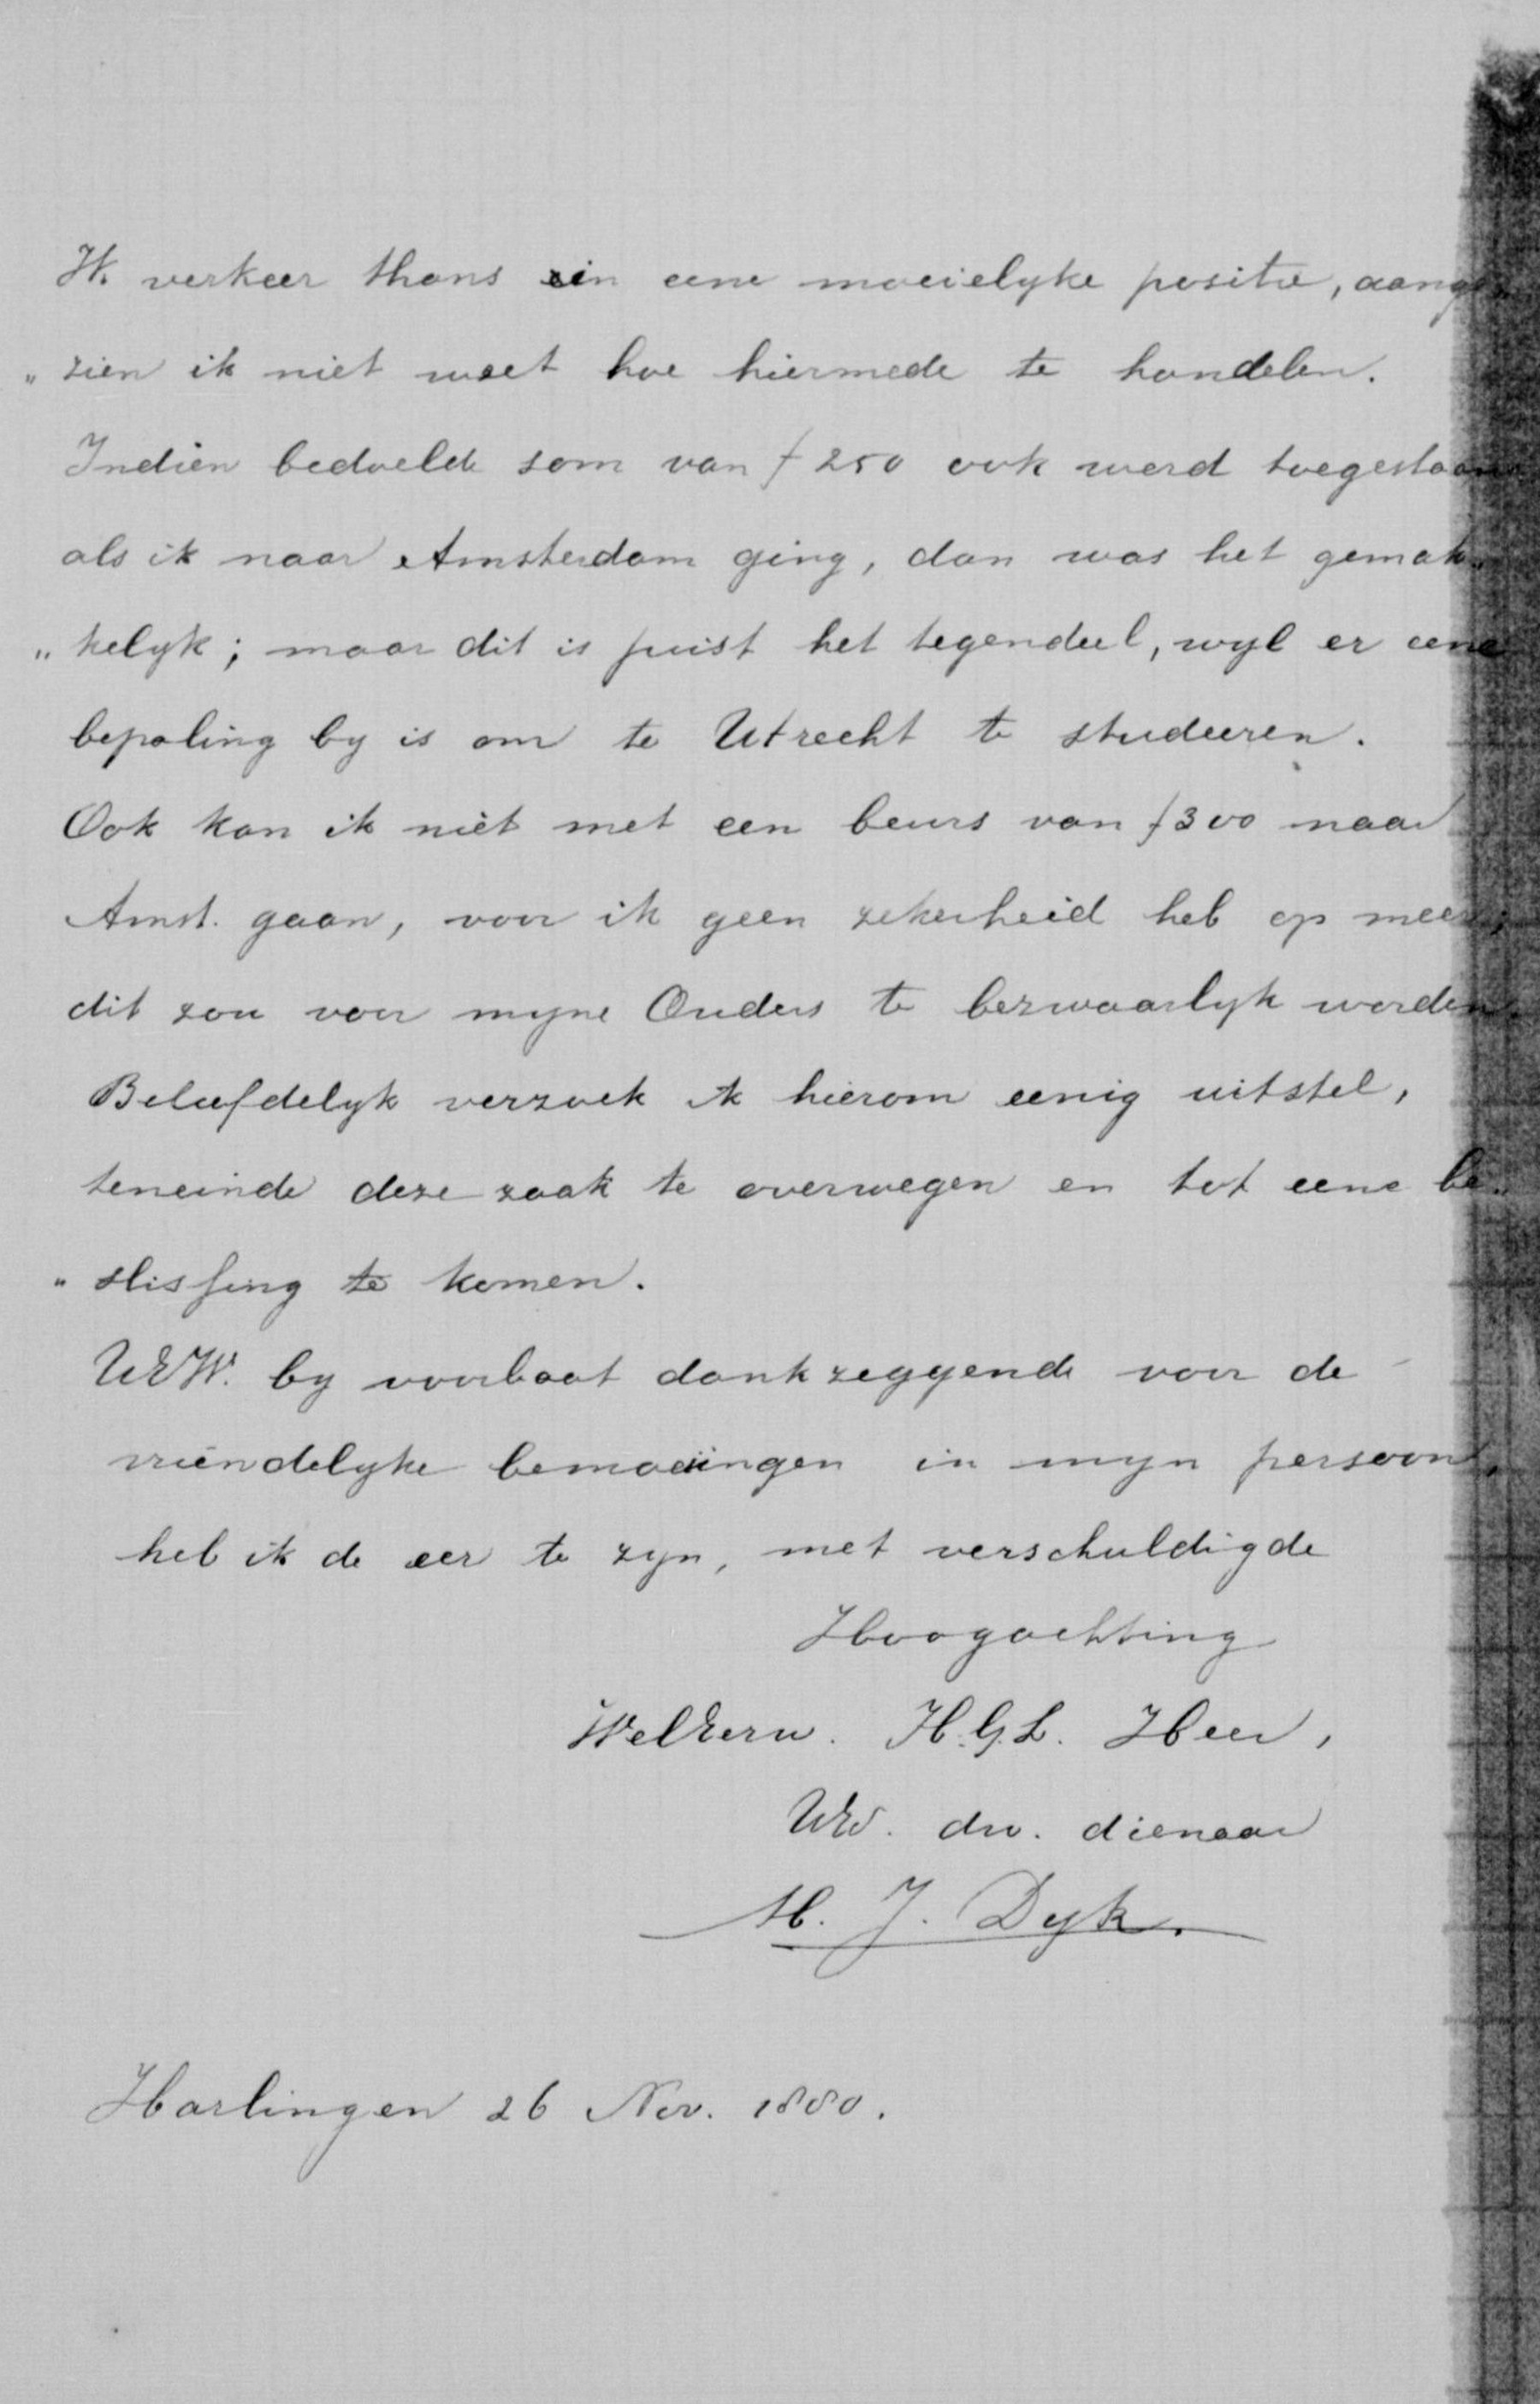 Ik verkeer thans in eene moeielyke positie, aange
„zien ik niet weet hoe hiermede te handelen.
Indien bedoelde som van f 250 ook werd toegestaan
als ik naar Amsterdam ging, dan was het gemak„
„kelyk; maar dit is juist het tegendeel, wyl er eene
bepaling by is om te Utrecht te studeeren.
Ook kan ik niet met een beurs van f 300 naar
Amst. gaan, voor ik geen zekerheid heb op meer;
dit zou voor myne Ouders te bezwaarlyk worden.
Beleefdelyk verzoek ik hierom eenig uitstel,
teneinde deze zaak te overwegen en tot eene be„
„slissing te komen.
UEW. by voorbaat dankzeggende voor de
vriendelyke bemoeiingen in myn persoon,
heb ik de eer te zyn, met verschuldigde
Hoogachting
WelEerw. H.G.L. Heer,
UEd. dw. dienaar
H. J. Dyk.
Harlingen 26 Nov. 1880.